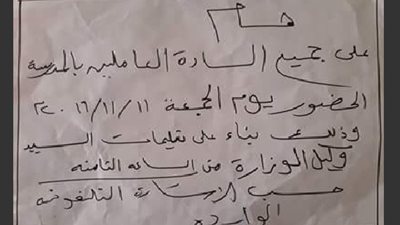 هام
على جميع السادة العاملين بالمدرسة
الحضور يوم الجمعة ٢٠١٦/١١/١١
وذلك بناء على تعليمات السيد
وكيل الوزارة من الساعة الثامنة
حسب الاشارة التلفونية
الواردة